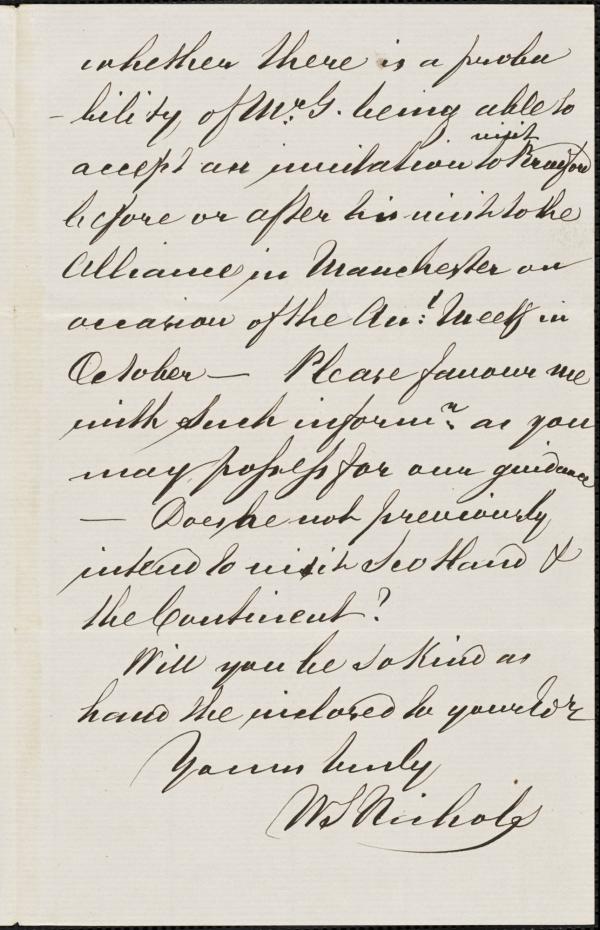 whether there is a proba
-bility of Mr. G. being able to
accept an invitation to visit Bradford
before or after his visit to the
Alliance in Manchester on
occasion of the An:l Meetg in
October — Please favour me
with such informn. as you
may possess for our guidance
— Does he not previously
intend to visit Scotland &
the Continent?
Will you be so kind as
hand the inclosed to your
Yours truly
W S Nichols